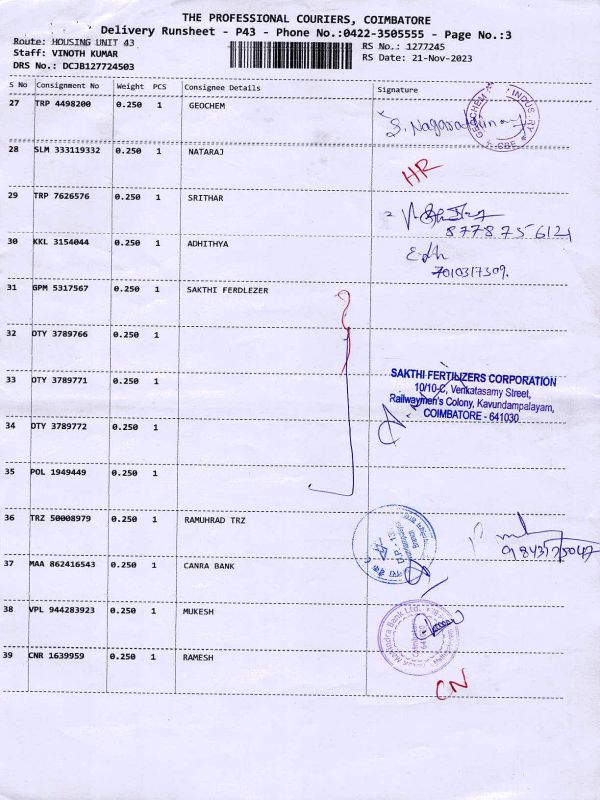 THE PROFESSIONAL COURIERS, COIMBATORE
Delivery Runsheet - P43 - Phone No.:0422-3505555 - Page No.:3
Route: HOUSING UNIT 43
Staff: VINOTH KUMAR
DRS No.: DCJB127724503
RS No.: 1277245
RS Date: 21-Nov-2023
S No Consignment No Weight PCS Consignee Details Signature
27 TRP 4498200 0.250 1 GEOCHEM
GEOCHEM INDUSRY CBE
28 SLM 333119332 0.250 1 NATARAJ HR
29 TRP 7626576 0.250 1 SRITHAR
8778756121
30 KKL 3154044 0.250 1 ADHITHYA
7010317509.
31 GPM 5317567 0.250 1 SAKTHI FERDLEZER
32 DTY 3789766 0.250 1
33 DTY 3789771 0.250 1
SAKTHI FERTILIZERS CORPORATION
10/10-C, Venkatasamy Street,
Railwaymen's Colony, Kavundampalayam,
COIMBATORE - 641030
34 DTY 3789772 0.250 1
35 POL 1949449 0.250 1
36 TRZ 50008979 0.250 1 RAMUHRAD TRZ
9843175047
37 MAA 862416543 0.250 1 CANRA BANK
38 VPL 944283923 0.250 1 MUKESH
39 CNR 1639959 0.250 1 RAMESH
CN